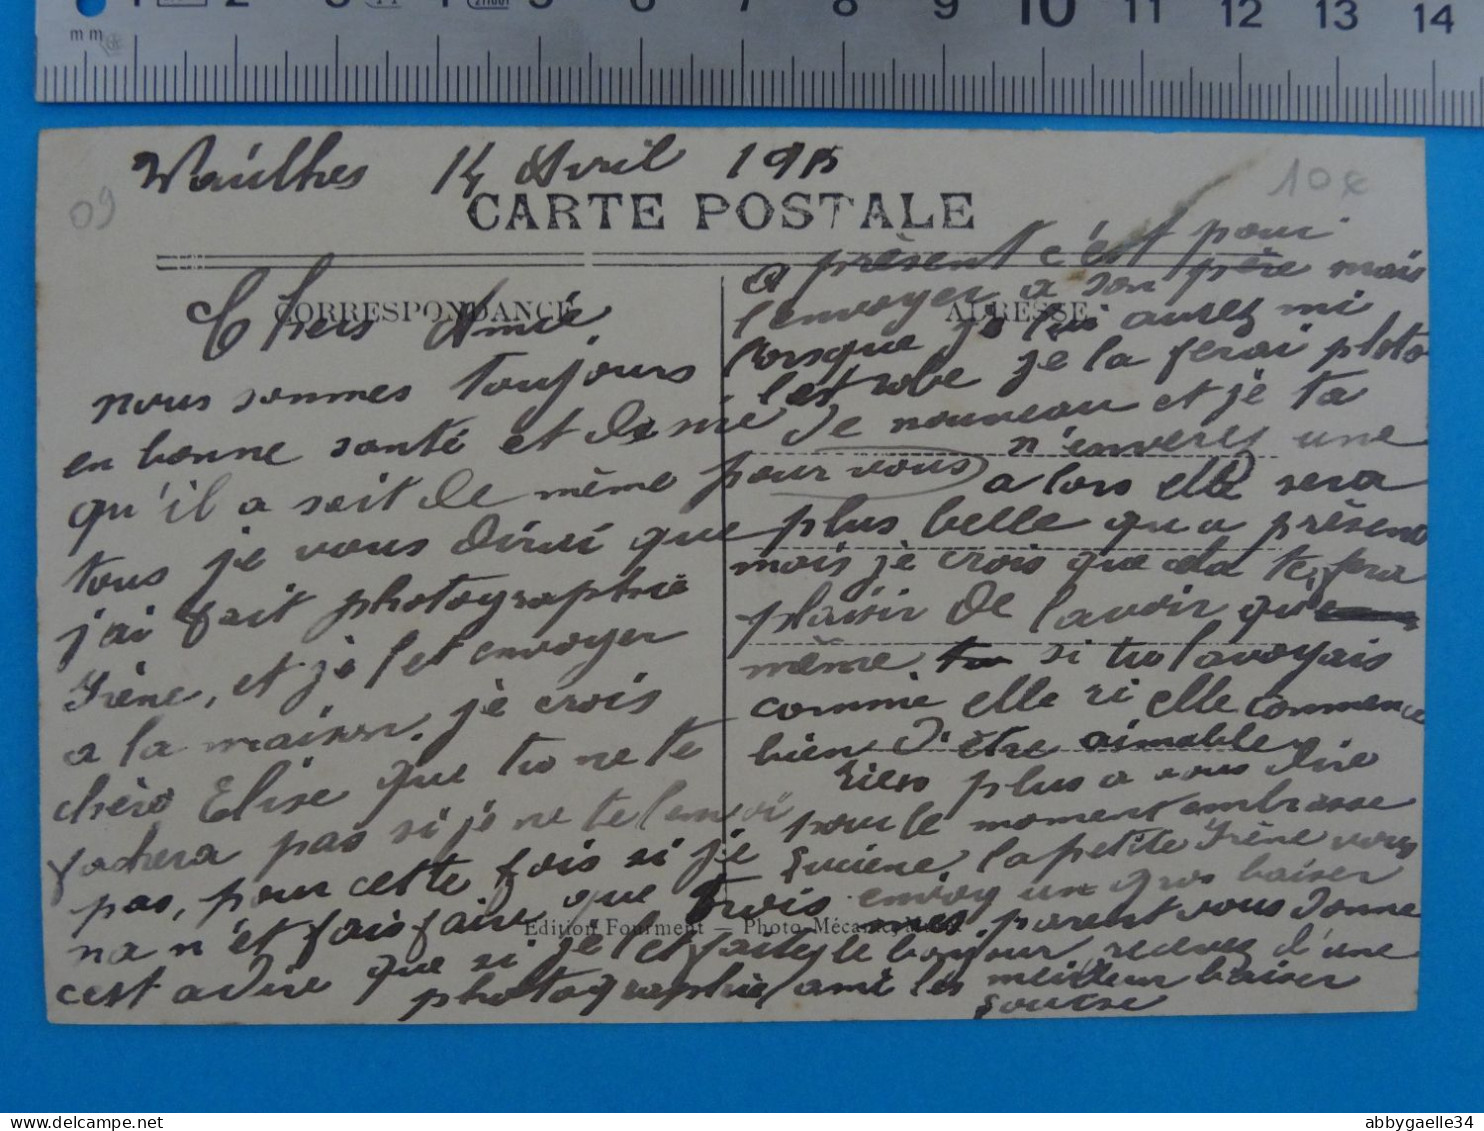 mm
1 2 3 4 5 6 7 8 9 10 11 12 13 14
14 Avril
09
10€
CARTE POSTALE
CORRESPONDANCE
ADRESSE
Chers Amie
nous sommes toujours
en bonne santé et desire
qu'il a soit de même pour vous
tous je vous dirai que
j'ai fait photographie
Irène, et je let envoyer
a la maison. je crois
chère Elise que tu ne te
fachera pas si je ne te lenvoi
pas, pour cette fois si je
na n'ét fais faire que trois
cest a dire que si je let faites
photographie
a présent c'est pour
lenvoyer a son père mais
lorsque je lui aurez mi
let robe je la ferai photo
de nouveau et je ta
n'enverez une
a lors elle sera
plus belle qu a présent
mais je crois que cela te fera
plaisir de lavoir que
même si tu lavoyais
comme elle ri elle commence
bien d'être aimable
riens plus a vous dire
pour le moment embrasse
Luciene, la petite Irène vous
envoy un gros baiser
mes parent vous donne
le bonjour, recevez d'une
ami les meilleur baiser
Edition Fourment — Photo-Mécan.
abbygaelle34